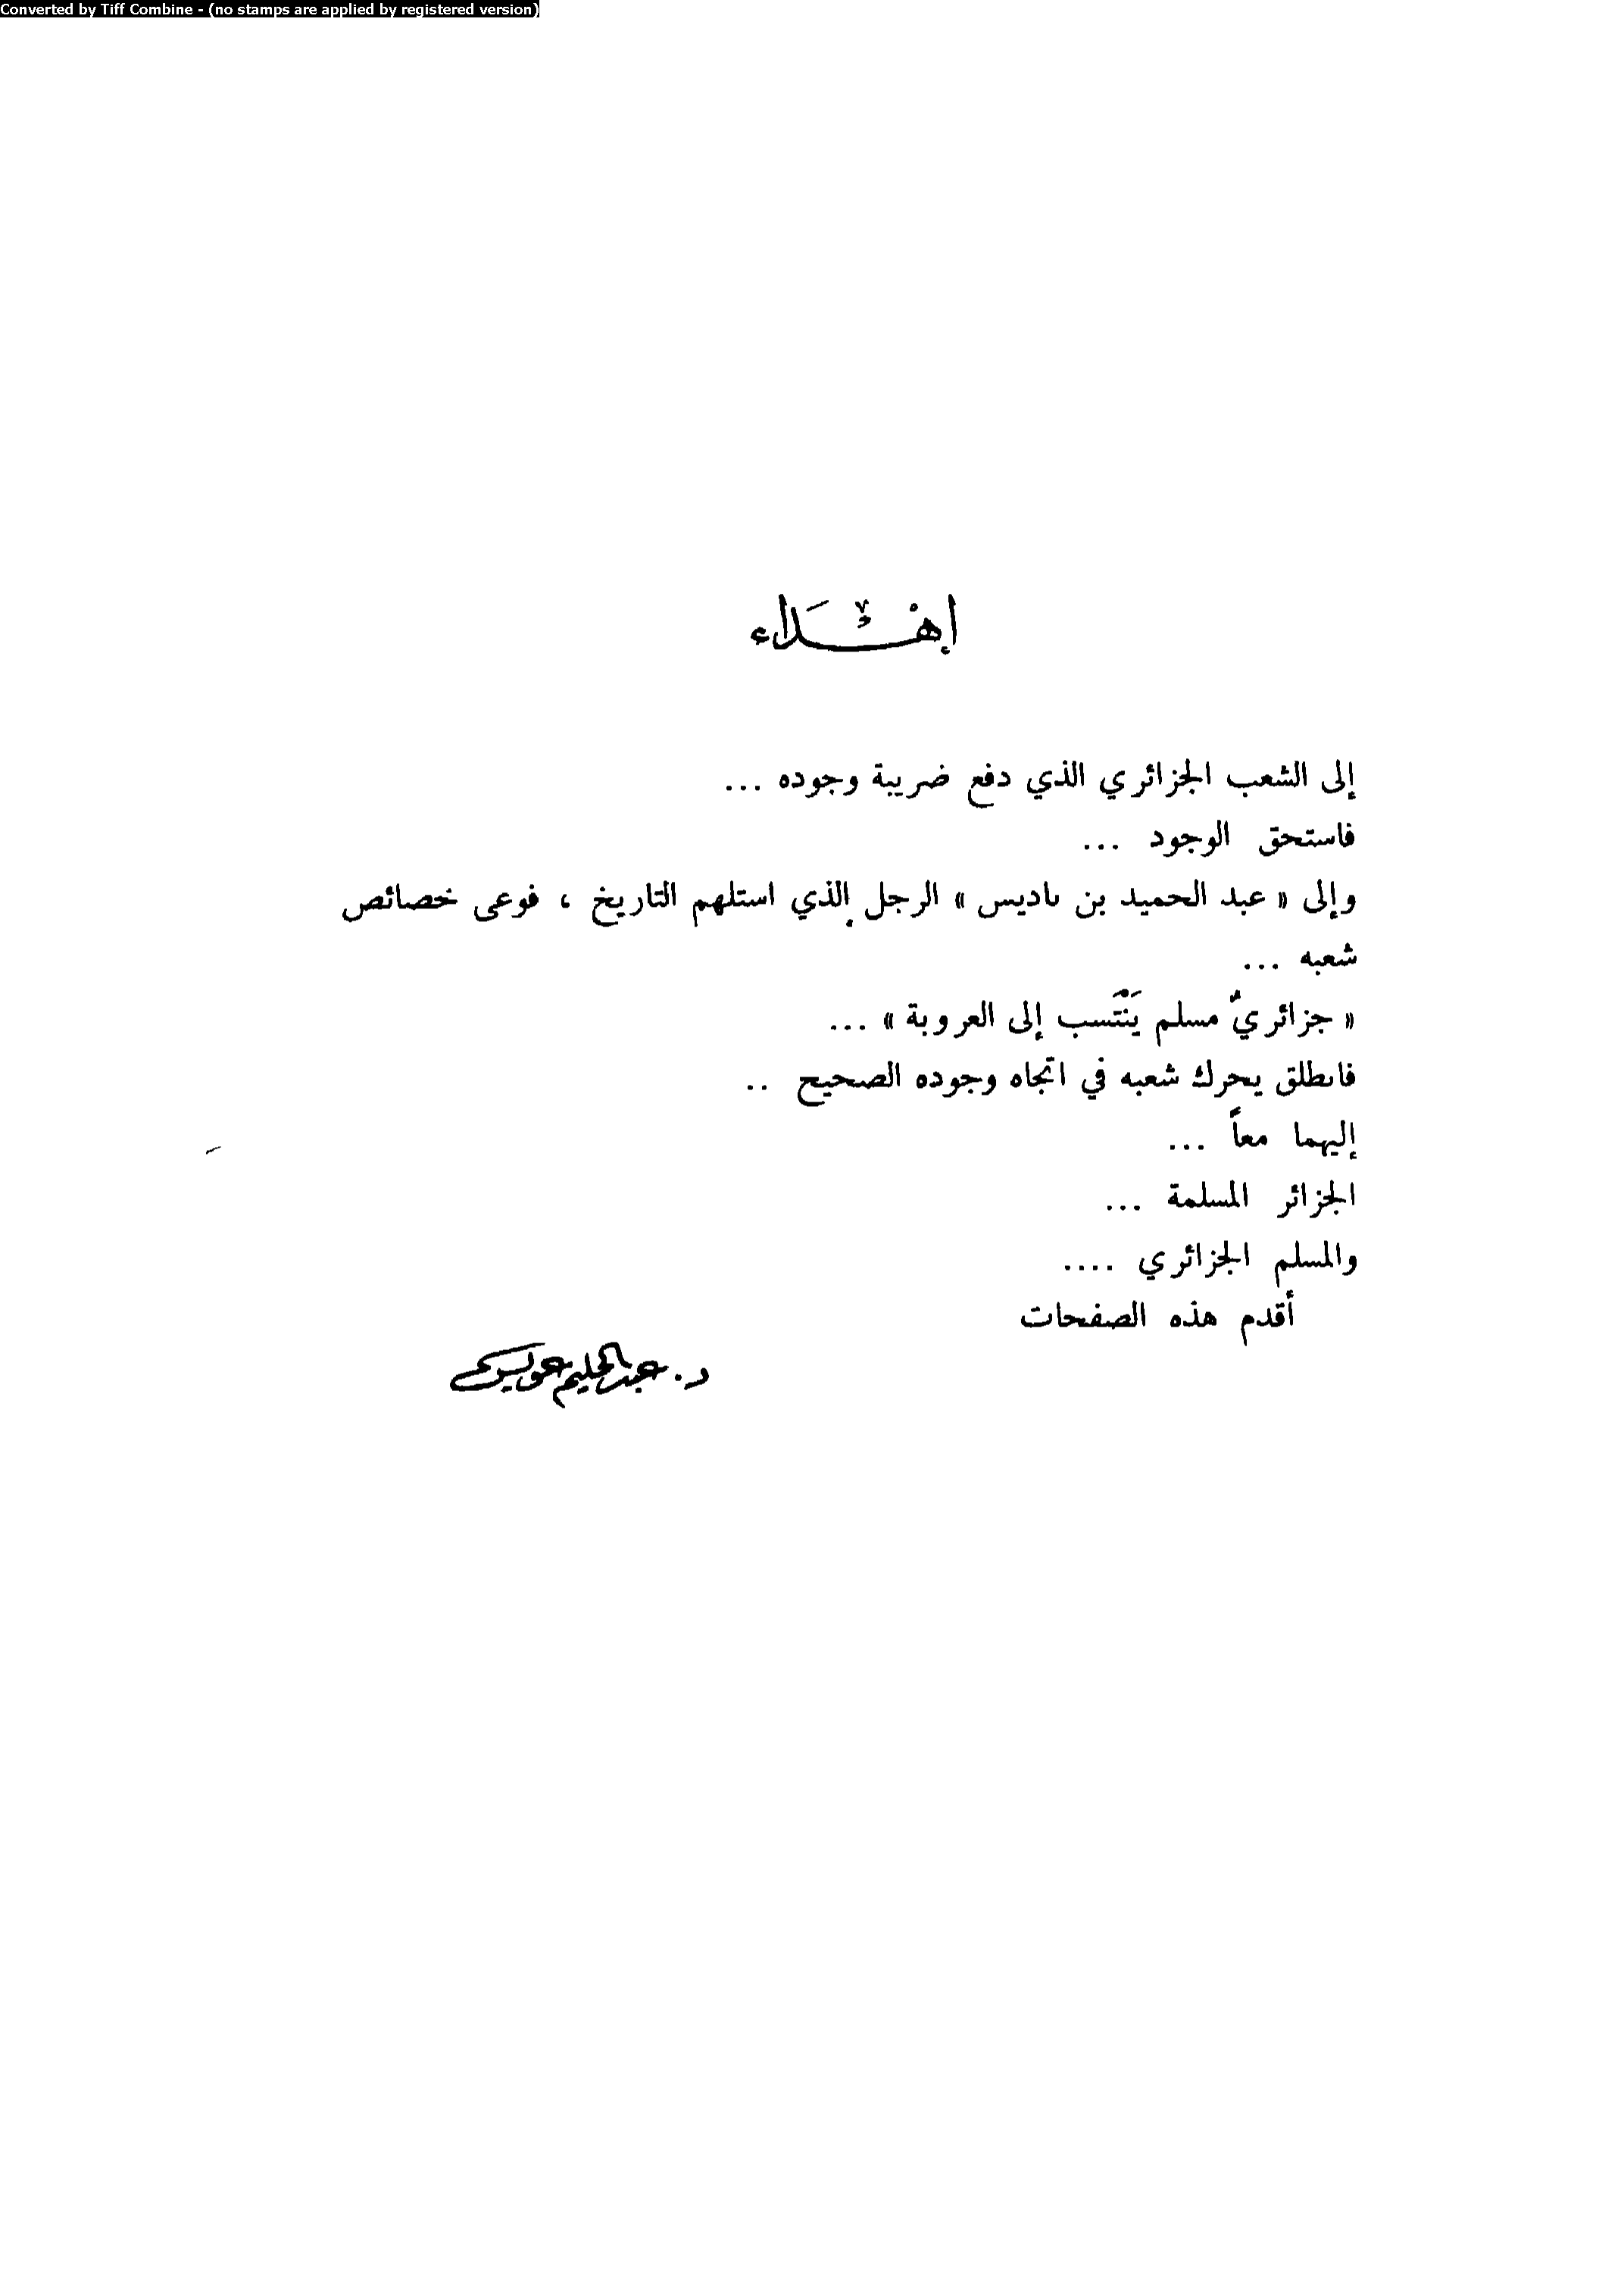 Converted by Tiff Combine - (no stamps are applied by registered version)
إهْدَاء
إلى الشعب الجزائري الذي دفع ضريبة وجوده ...
فاستحق الوجود ...
وإلى « عبد الحميد بن باديس » الرجل الذي استلهم التاريخ ، فوعى خصائص
شعبه ...
« جزائريٌ مسلم يَنْتَسب إلى العروبة » ...
فانطلق يحرك شعبه في اتجاه وجوده الصحيح ..
إليهما معاً ...
الجزائر المسلمة ...
والمسلم الجزائري ....
أقدم هذه الصفحات
د. عبد الحليم عويس